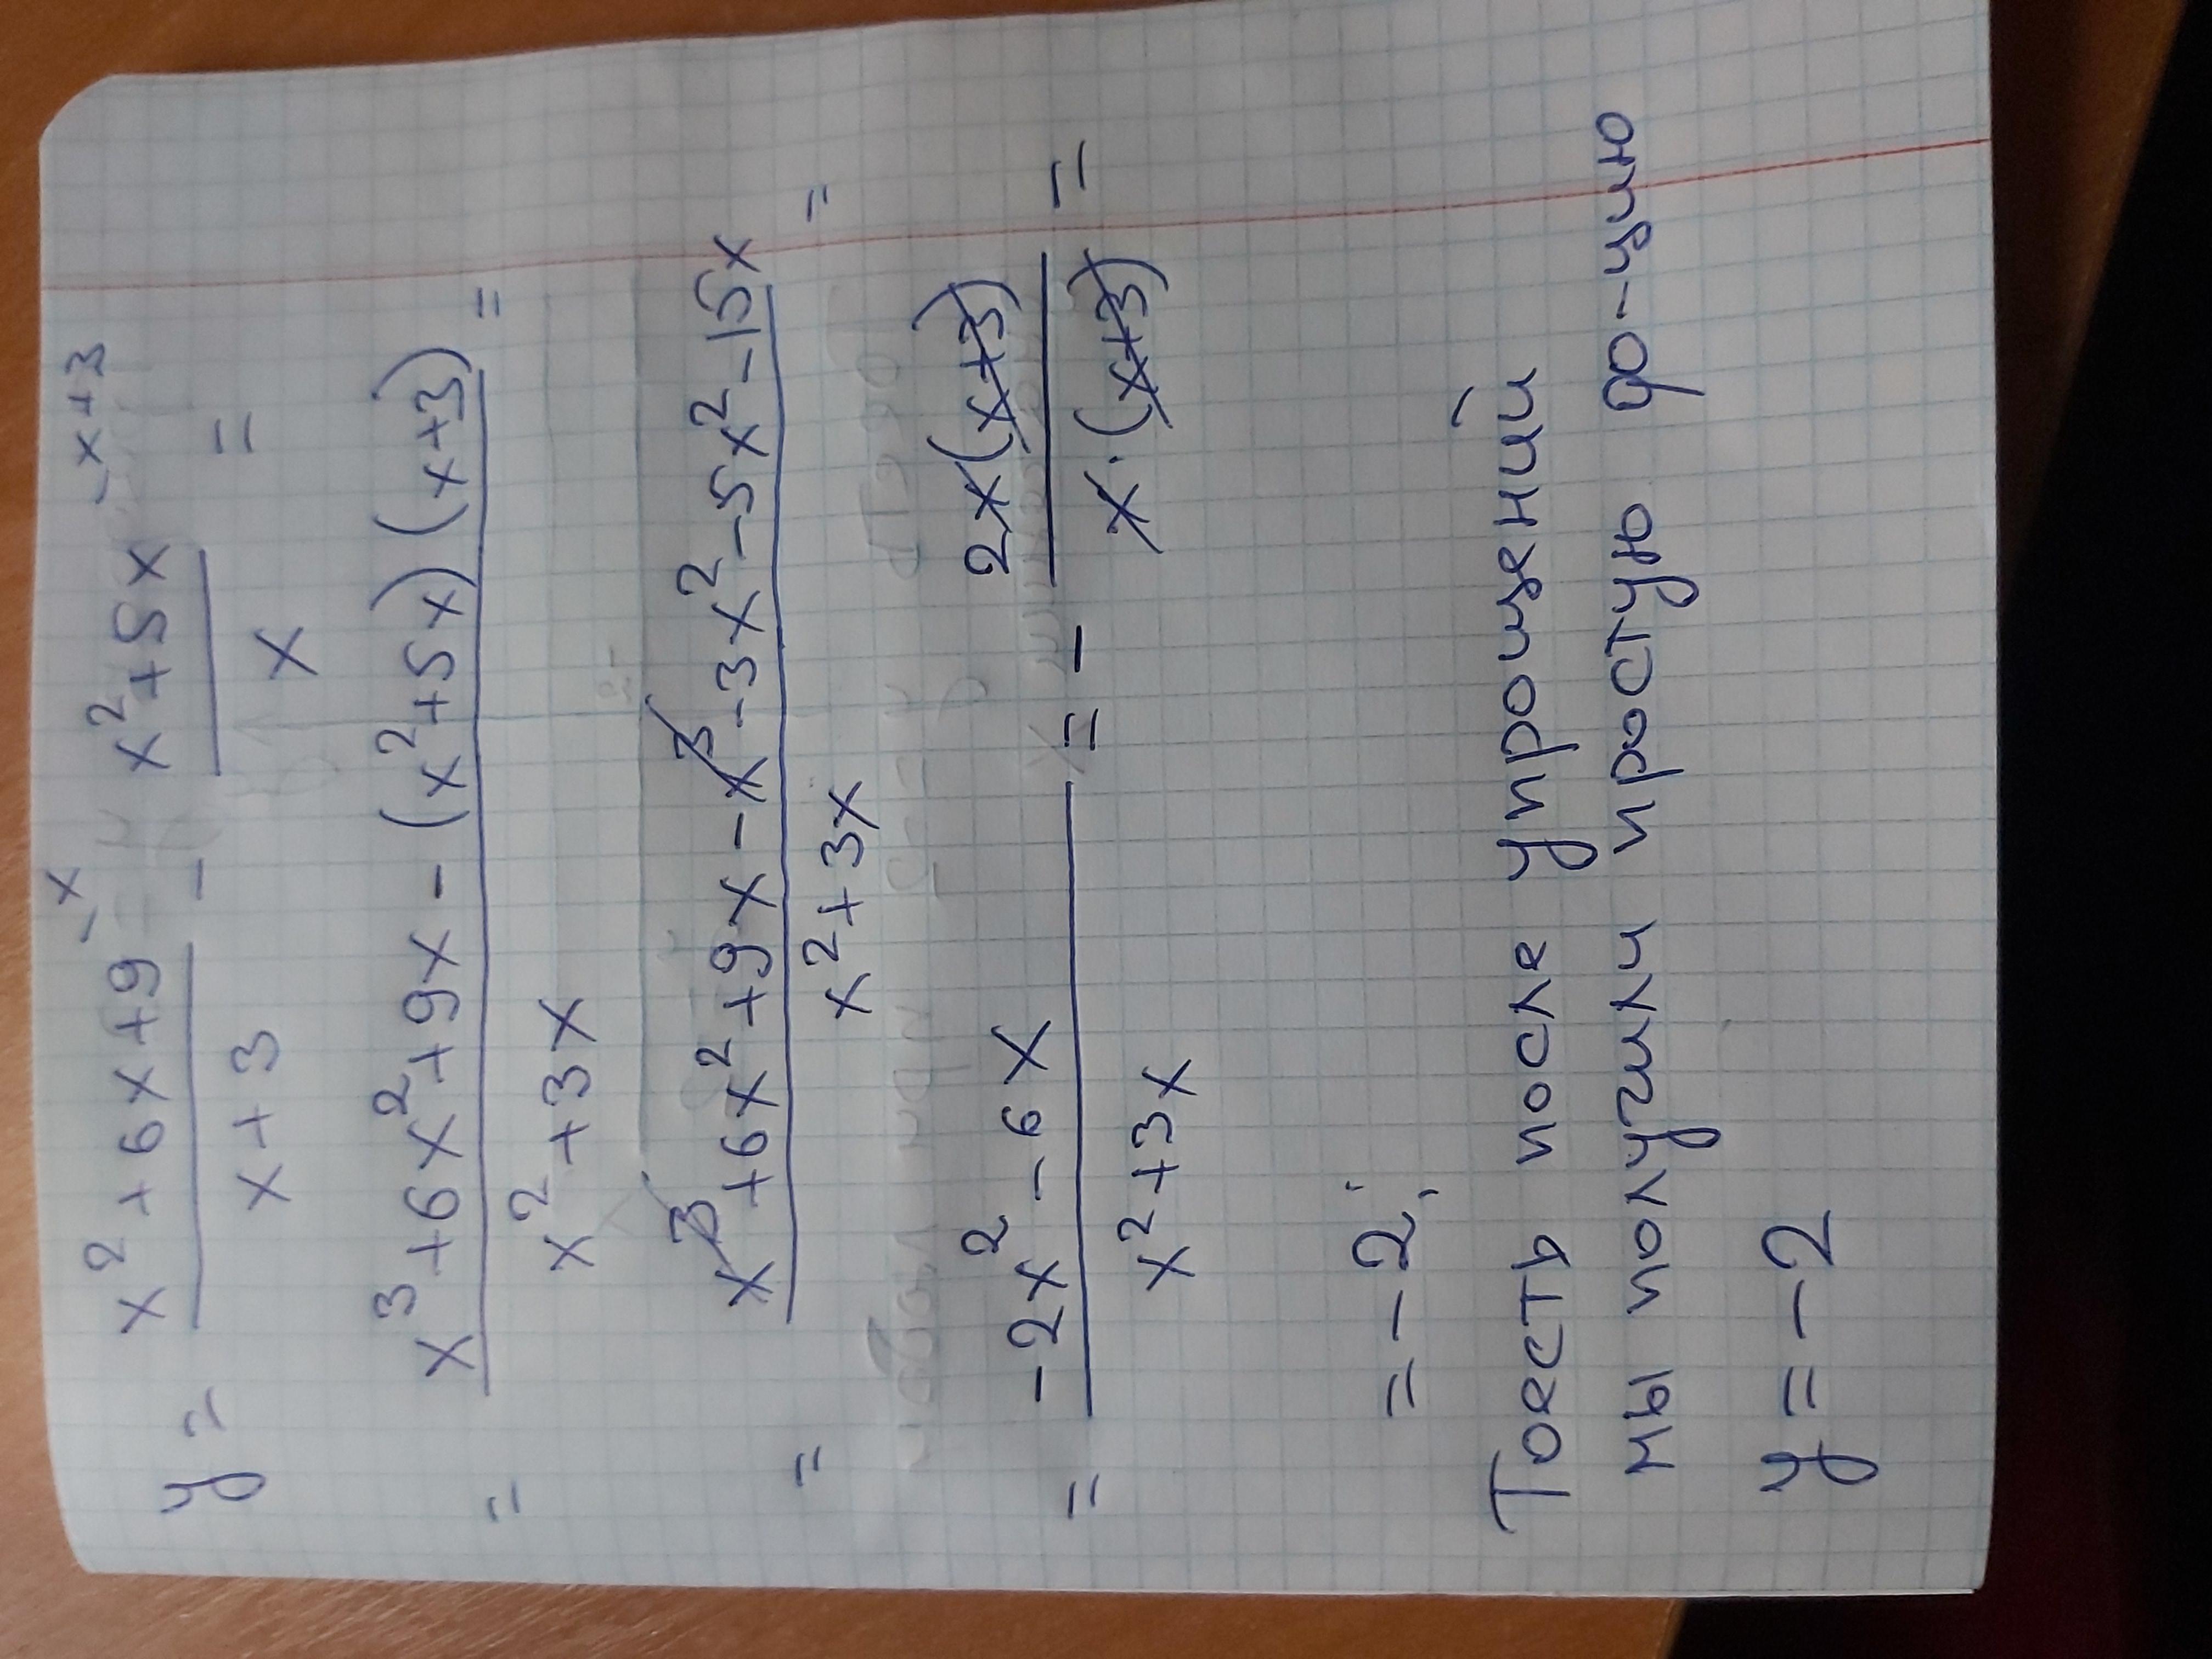 y = (x² + 6x + 9)/(x + 3) ⁻ˣ - (x² + 5x)/x ⁻ˣ⁺³ =
= (x³ + 6x² + 9x - (x² + 5x)(x + 3))/(x² + 3x) =
= (x³ + 6x² + 9x - x³ - 3x² - 5x² - 15x)/(x² + 3x) =
= (-2x² - 6x)/(x² + 3x) = - (2x(x+3))/(x·(x+3)) =
= -2;
Тоесть после упрощений
мы получили простую ф-цию
y = -2